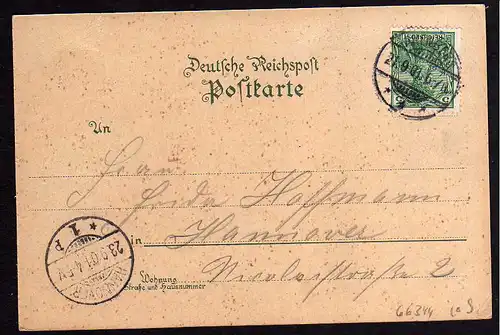 Deutsche Reichspost
Postkarte
An
Frida Hoffmann
in Hannover
Wohnung
Straße und Hausnummer
Nicolaistraße 2
1 P
23.9.01.4-5N
HANNOVER
66344